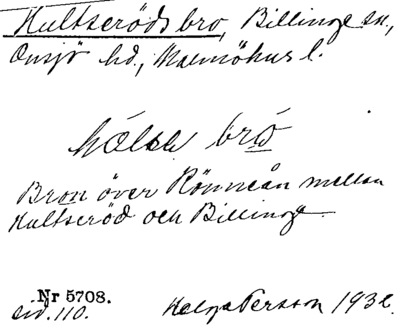 Hultseröds bro, Billinge sn.,
Onsjö hd., Malmöhus l.
bro
Bron över Rönneån mellan
Hultseröd och Billinge.
Nr 5708.
sid. 110.
Helga Persson 1932